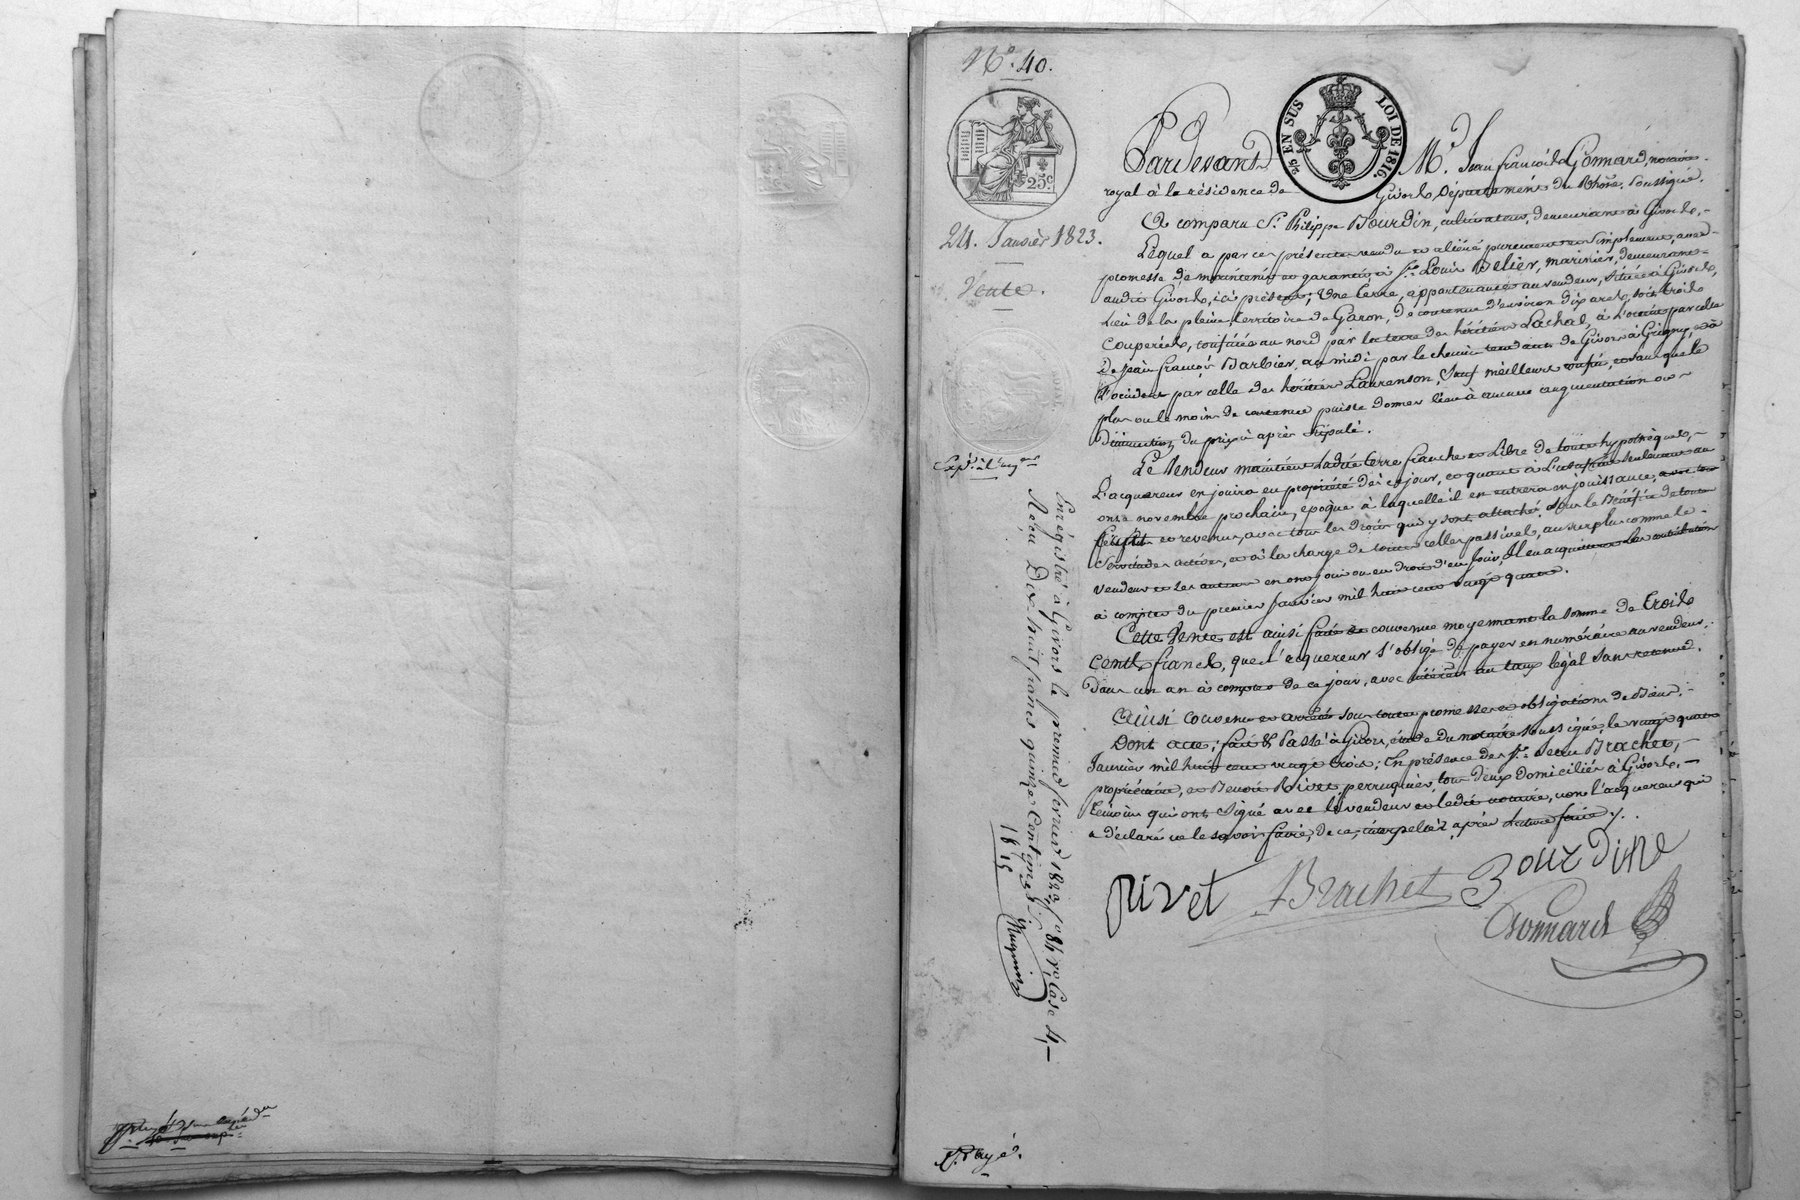 N.° 40.
25 EN SUS LOI DE 1816.
25c
24. Janvier 1823.
Vente.
Pardevant M.e Jean françois Gonnard, notaire
royal à la résidence de Givors, Département du Rhône, soussigné.
A comparu S.r Philippe Bourdin, cultivateur, demeurant à Givors,
Lequel a par ces présentes vendu et aliéné purement et simplement, avec
promesse de maintenir et garantir, à S.r Louis Delier, marinier, demeurant
audit Givors, ici présent; une terre, appartenant au vendeur, située à Givors,
lieu de la pleine, territoire de Garon, de contenue d'environ dix ares, soit trois
couperées, confinée au nord par la terre des héritiers Lachal, à l'orient par celle
de jean françois Barbier, au midi par le chemin tendant de Givors à Grigny, et à
l'occident par celle des héritiers Laurenson, sauf meilleurs confins, et sans que le
plus ou le moins de contenue puisse donner lieu à aucune augmentation ou
diminution du prix ci après stipulé.
Le vendeur maintient ladite terre franche et libre de toute hypothèque,
L'acquereur en jouira en propriété dès ce jour, et quant à l'usufruit seulement au
onze novembre prochain, époque à laquelle il en entrera en jouissance, avec tous
fruits et revenus, avec tous les droits qui y sont attachés, sous le bénéfice de toutes
servitudes actives, et à la charge de toutes celles passives, au surplus comme le
vendeur et ses auteurs en ont joui ou eu droit d'en jouir, Il en acquittera les contributions
à compter du premier janvier mil huit cent vingt quatre.
Cette vente est ainsi faite et convenue moyennant la somme de trois
cents francs, que l'acquereur s'oblige de payer en numéraire au vendeur,
dans un an à compter de ce jour, avec intérêts au taux légal sans retenue.
Ainsi convenu et arrêté sous toutes promesses et obligations de Biens.
Dont acte; fait & Passé à Givors, étude du notaire soussigné, le vingt quatre
Janvier mil huit cent vingt trois; En présence des S.rs Brachet,
propriétaire, et Benoit Rivet, perruquier, tous deux domiciliés à Givors,
témoins qui ont signé avec le vendeur et ledit notaire, non l'acquereur qui
a déclaré ne le savoir faire, de ce, interpellés, après lecture faite.
rivet Brachet Bourdin
Gonnard
Enregistré à Givors le premier fevrier 1823, f.o 84, r.o Case 4,
Reçu Dix huit francs quinze Centimes
18 15
payé.